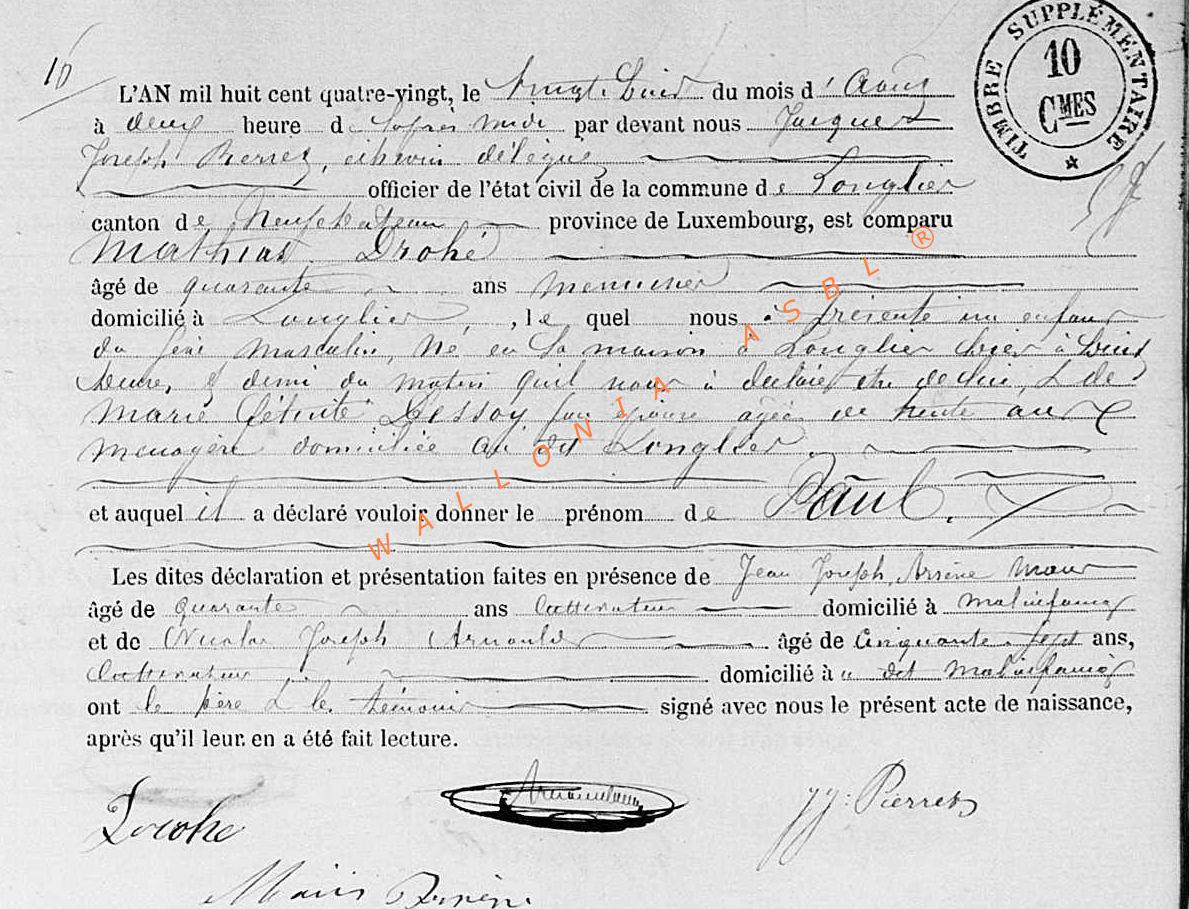 TIMBRE SUPPLÉMENTAIRE
10
CMES
L'AN mil huit cent quatre-vingt, le Vingt huit du mois d'Août
à deux heure de l'après midi par devant nous Jacques
Joseph Pierret, échevin délégué
officier de l'état civil de la commune de Longlier
canton de Neufchateau province de Luxembourg, est comparu
Mathias Drohé
âgé de quarante ans menuisier
domicilié à Longlier, lequel nous a présenté un enfant
du sexe masculin, né en sa maison à Longlier hier à huit
heures & demi du matin qu'il nous à déclaré être de lui, & de
Marie Lessoy son épouse agée de trente ans
menagère domiciliée au dit Longlier
et auquel il a déclaré vouloir donner le prénom de Paul.
Les dites déclaration et présentation faites en présence de Jean Joseph, Arsène
âgé de quarante ans cultivateur domicilié à Malaifaing
et de Nicolas Joseph Arnould âgé de Cinquante sept ans,
cultivateur domicilié à dit Malaifaing
ont le père & le témoins signé avec nous le présent acte de naissance,
après qu'il leur en a été fait lecture.
Drohe
JJ: Pierret
WALLONIA ASBL ®